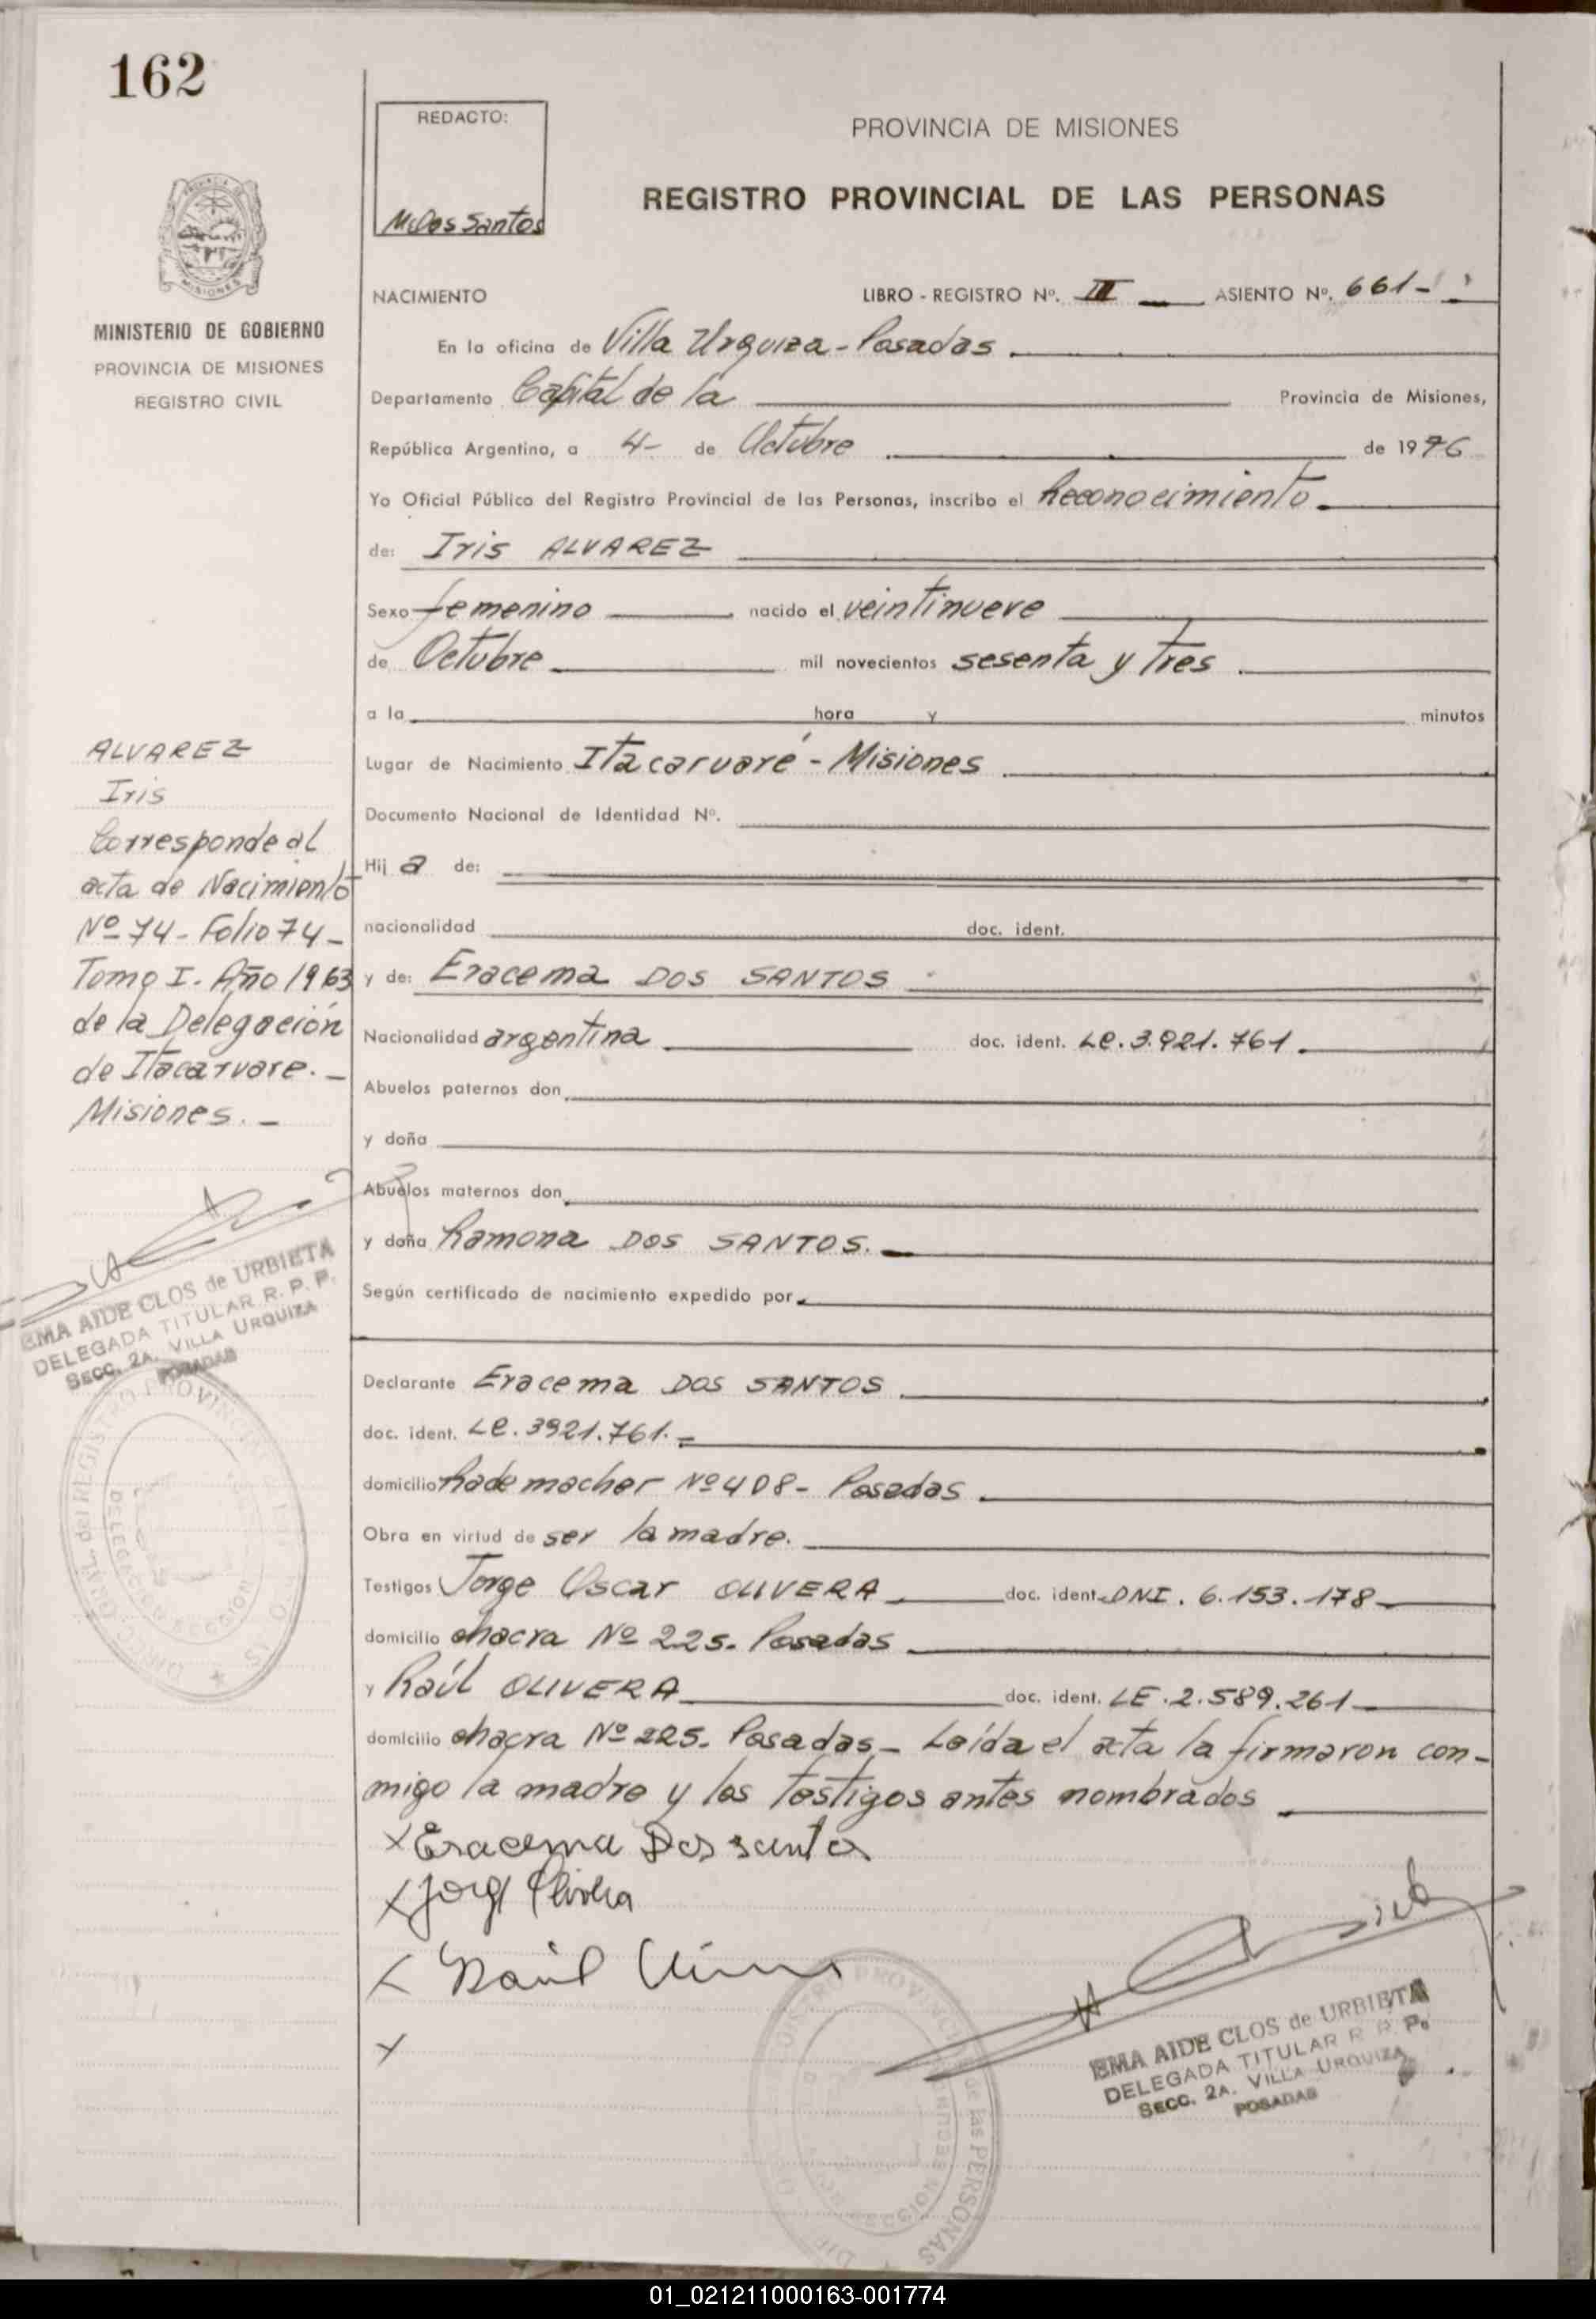 162
REDACTO:
M. Dos Santos
PROVINCIA DE MISIONES
REGISTRO PROVINCIAL DE LAS PERSONAS
MISIONES
MINISTERIO DE GOBIERNO
PROVINCIA DE MISIONES
REGISTRO CIVIL
NACIMIENTO LIBRO - REGISTRO Nº. III ASIENTO Nº. 661-
En la oficina de Villa Urquiza - Posadas.
Departamento Capital de la Provincia de Misiones,
República Argentina, a 4- de Octubre de 1976
Yo Oficial Público del Registro Provincial de las Personas, inscribo el Reconocimiento.
de: Iris ALVAREZ
Sexo femenino nacido el veintinueve
de Octubre mil novecientos sesenta y tres.
a la hora y minutos
Lugar de Nacimiento Itacaruaré - Misiones
Documento Nacional de Identidad Nº.
Hij a de:
nacionalidad doc. ident.
y de: Eracema DOS SANTOS
Nacionalidad argentina doc. ident. Le. 3.921.761.
Abuelos paternos don
y doña
Abuelos maternos don
y doña Ramona DOS SANTOS.
Según certificado de nacimiento expedido por
Declarante Eracema DOS SANTOS
doc. ident. Le. 3921.761.-
domicilio Rademacher Nº 408- Posadas
Obra en virtud de ser la madre.
Testigos Jorge Oscar OLIVERA doc. ident. DNI. 6.153.178-
domicilio chacra Nº 225. Posadas
y Raúl OLIVERA doc. ident. LE. 2.589.261
domicilio chacra Nº 225. Posadas- Leída el acta la firmaron con-
migo la madre y los testigos antes nombrados
x Eracema Dos santos
x Jorge Olivera
x Raul
x
ALVAREZ
Iris
Corresponde al
acta de Nacimiento
Nº 74- Folio 74-
Tomo I. Año 1963
de la Delegación
de Itacaruare.-
Misiones.-
EMA AIDE CLOS de URBIETA
DELEGADA TITULAR R. P. P.
SECC. 2A. VILLA URQUIZA
POSADAS
EMA AIDE CLOS de URBIETA
DELEGADA TITULAR R. P. P.
SECC. 2A. VILLA URQUIZA
POSADAS
01_021211000163-001774